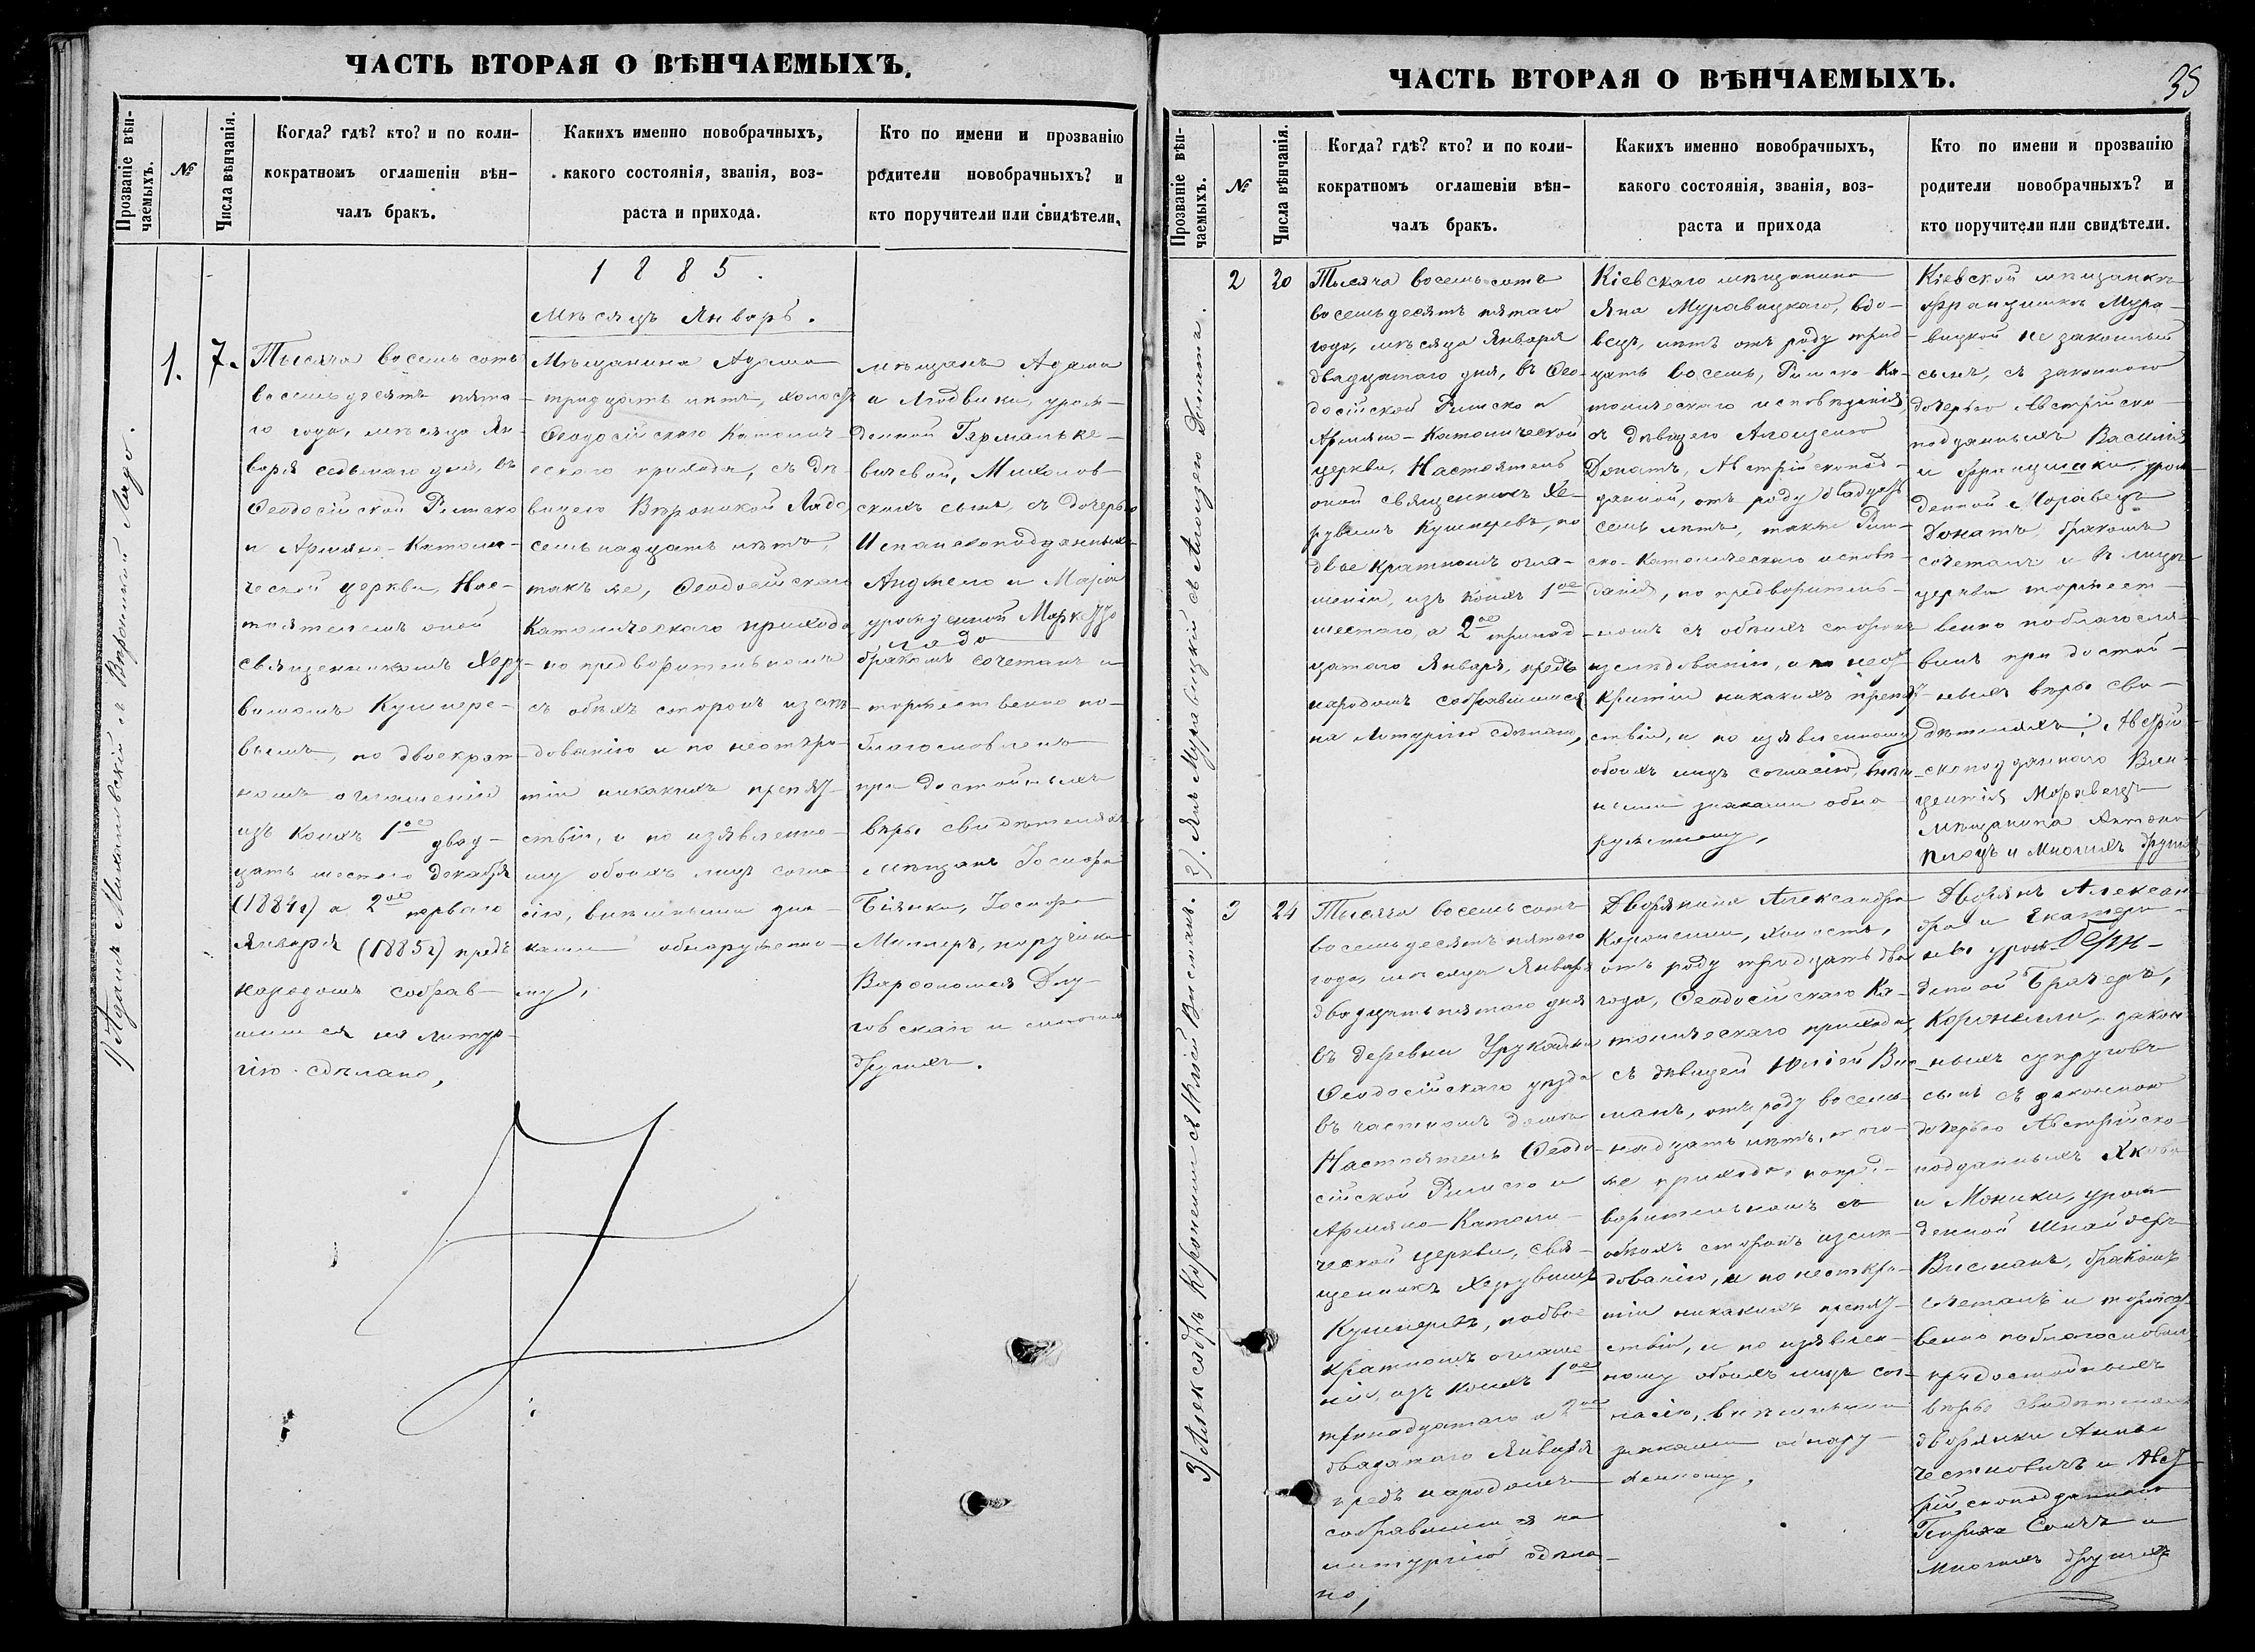 ЧАСТЬ ВТОРАЯ О ВѢНЧАЕМЫХЪ.
Прозваніе вѣн-
чаемыхъ.
№
Числа вѣнчанія.
Когда? гдѣ? кто? и по коли-
кократномъ оглашеніи вѣн-
чалъ бракъ.
Какихъ именно новобрачныхъ,
какого состоянія, званія, воз-
раста и прихода.
Кто по имени и прозванію
родители новобрачныхъ? и
кто поручители или свидѣтели.
1) Адамъ Михаловскій съ Вѣроникой Лядо.
1.
7.
Тысяча восемь сотъ
восемьдесятъ пята-
го года, мѣсяца Ян-
варя седьмаго дня, въ
Ѳеодосійской Римско
и Армяно-Католи-
ческой церкви, Нас-
тоятелемъ оной
священникомъ Херу-
вимомъ Кушнере-
вымъ, по двоекрат-
номъ оглашеніи
изъ коихъ 1ое двад-
цать шестаго Декабря
(1884г) а 2ое перваго
Января (1885г) предъ
народомъ собрав-
шимся на литур-
гію сдѣлано,
1885.
Мѣсяцъ Январь.
Мѣщанина Адама
тридцать лѣтъ, холостъ
Ѳеодосійскаго Католич-
ескаго прихода, съ дѣ-
вицею Вѣроникой Лядо,
семьнадцать лѣтъ,
такъ же, Ѳеодосійскаго
Католическаго прихода
по предворительномъ
съ обѣихъ сторонъ изслѣ-
дованію и по неоткры-
тіи никакихъ препят-
ствій, и по изъявленно-
му обоихъ лицъ согла-
сію, внѣшними зна-
ками обнаруженно-
му,
мѣщанъ Адама
и Людвики, урож-
денной Германьке-
вичевой, Михалов-
скихъ сынъ, съ дочерью
Испанскоподданныхъ
Анджело и Маріи
урожденной Маркеццо
Лядо
бракомъ сочетанъ и
торжественно по-
благословленъ
при достойныхъ
вѣры свидѣтеляхъ
мѣщанъ Іосифа
Бѣлики, Іосифа
Миллеръ, поручика
Варфоломея Длу-
говскаго и многихъ
другихъ.
ЧАСТЬ ВТОРАЯ О ВѢНЧАЕМЫХЪ.
35
Прозваніе вѣн-
чаемыхъ.
№
Числа вѣнчанія.
Когда? гдѣ? кто? и по коли-
кократномъ оглашеніи вѣн-
чалъ бракъ.
Какихъ именно новобрачныхъ,
какого состоянія, званія, воз-
раста и прихода
Кто по имени и прозванію
родители новобрачныхъ? и
кто поручители или свидѣтели.
2). Янъ Муравицкій съ Алоизею Донатъ.
2
20
Тысяча восемь сотъ
восемьдесятъ пятаго
года, мѣсяца Января
двадцатаго дня, въ Ѳео-
досійской Римско и
Армяно-Католической
церкви, Настоятель
оной священникъ Хе-
рувимъ Кушнеревъ, по
двоекратномъ огла-
шеніи, изъ коихъ 1ое
шестаго, а 2ое тринад-
цатаго Января, предъ
народомъ собравшимся
на литургію сдѣлано,
Кіевскаго мѣщанина
Яна Муравицкаго, вдо-
вецъ, лѣтъ отъ роду трид-
цать восемь, Римско-Ка-
толическаго исповѣданія,
съ дѣвицею Алоизею
Донатъ, Австрійскопод-
данной, отъ роду двадцать
семь лѣтъ, также Рим-
ско-Католическаго исповѣ-
данія, по предворитель-
номъ съ обѣихъ сторонъ
изслѣдованіи, и по неот-
крытіи никакихъ препят-
ствій, и по изъявленному
обоихъ лицъ согласію, внѣш-
ними знаками обна-
руженному,
Кіевской мѣщанки
Францишки Мура-
вицкой незаконный
сынъ, съ законною
дочерью Австрійско-
подданныхъ Василія
и Францишки, урож-
денной Моравецъ
Донатъ, бракомъ
сочеталъ и въ лицѣ
церкви торжест-
венно поблагосло-
вилъ при достой-
ныхъ вѣры сви-
дѣтеляхъ, Австрій-
скоподданнаго Вин-
центія Моравецъ
Мѣщанина Антона
и многихъ другихъ
3) Александръ Коронелли съ Юліей Висманъ.
3
24
Тысяча восемь сотъ
восемьдесятъ пятаго
года, мѣсяца Января
двадцать пятаго дня
въ деревни
Ѳеодосійскаго уѣзда
въ частномъ домѣ
Настоятель Ѳеодо-
сійской Римско и
Армяно-Католи-
ческой церкви, свя-
щенникъ Херувимъ
Кушнеревъ, подвое-
кратномъ оглаше-
ніи, изъ коихъ 1ое
тринадцатаго а 2ое
двадцатаго Января
предъ народомъ
собравшимся на
литургію сдѣла-
но,
Дворянина Александра
Коронелли, холостъ,
отъ роду тридцать два
года, Ѳеодосійскаго Ка-
толическаго прихода,
съ дѣвицей Юліей Вис-
манъ, отъ роду восемь-
надцать лѣтъ, того
же прихода, попред-
ворительномъ съ
обѣихъ сторонъ изслѣ-
дованію, и по неоткры-
тіи никакихъ препят-
ствій, и по изъявлен-
ному обоихъ лицъ сог-
ласію, внѣшними
знаками обнару-
женному,
Дворянъ Алексан-
дра и Екатери-
ны урож-
денной
Коронелли, закон-
ныхъ супруговъ
сынъ съ законною
дочерью Австрійско-
подданныхъ Якова
и Моники, урож-
денной Шнайдеръ
Висманъ, бракомъ
сочеталъ и торжест-
венно поблагословилъ
придостойныхъ
вѣры свидѣтеляхъ
дворянки Анны
Честновичъ и Авст-
рійскоподданнаго
Генриха и
многихъ другихъ